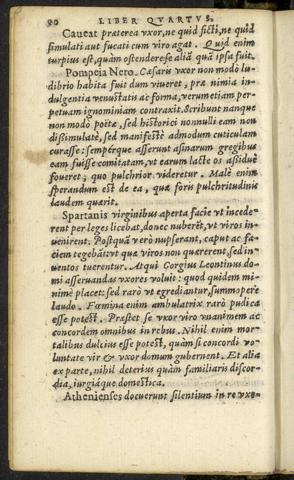 90 LIBER QVARTVS.
Caueat præterea vxor, ne quid ficti, ne quid
simulati aut fucati cum viro agat. Quid enim
turpius est, quàm ostendere se aliã quã ipsa fuit.
Pompeia Nero. Cæsaris vxor non modò lu-
dibrio habita fuit dum viueret, præ nimia in-
dulgentia venustatis ac forma, verumetiam per-
petuam ignominiam contraxit. Scribunt nanque
non modò poëtæ, sed historici nonnulli eam non
dißimulatè, sed manifestè admodum cuticulam
curasse: semperque asserunt asinarum gregibus
eam fuisse comitatam, vt earum lacte os aßiduè
foueret, quo pulchrior videretur. Malè enim
sperandum est de ea, quæ foris pulchritudinis
laudem quærit.
Spartanis virginibus aperta facie vt incede-
rent per leges licebat, donec nuberẽt, vt viros in-
uenirent. Postquã verò nupserant, caput ac fa-
ciem tegebãt: vt quæ viros non quererent, sed in-
uentos tuerentur. Atqui Gorgius Leontinus do-
mi asseruandas vxores voluit: quod quidem mi-
nimè placet: sed rarò vt egrediantur, summopere
laudo. Fœmina enim ambulatrix rarò pudica
esse potest. Præstet se vxor viro vnanimem ac
concordem omnibus in rebus. Nihil enim mor-
talibus dulcius esse potest, quàm si concordi vo-
luntate vir & vxor domum gubernent. Et alia
ex parte, nihil deterius quàm familiaris discor-
dia, iurgiáque domestica.
Athenienses docuerunt silentium in re vxo-